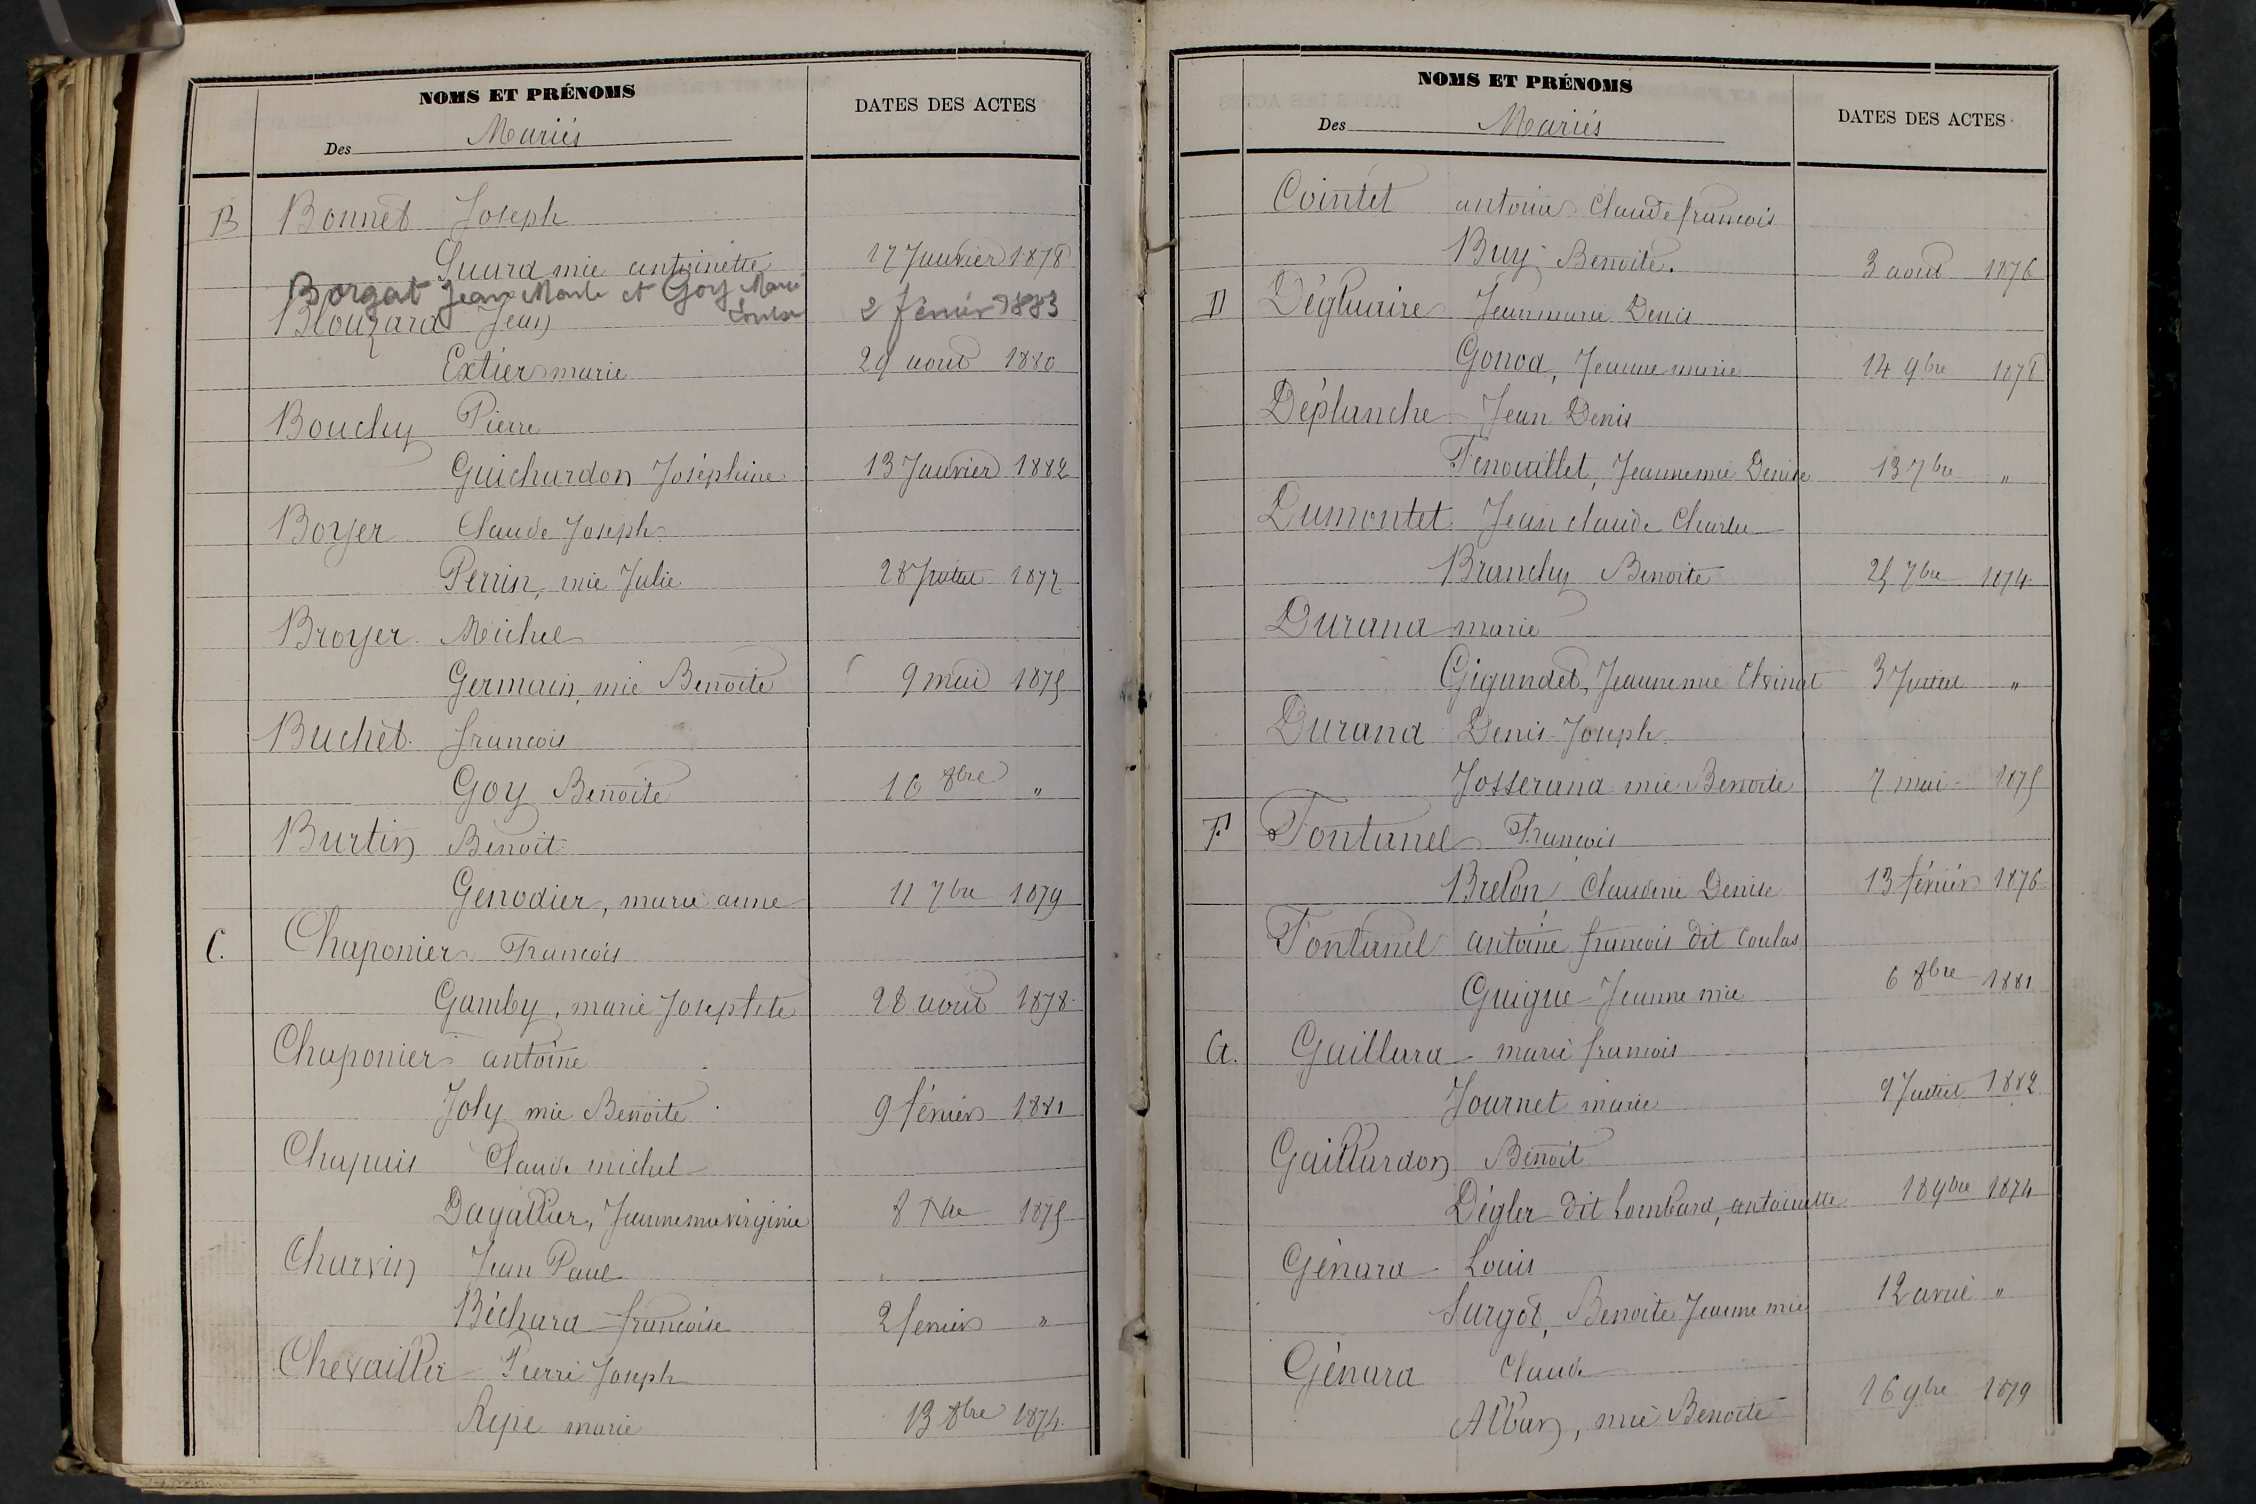 NOMS ET PRÉNOMS
DATES DES ACTES
Des Mariés
B Bonnet Joseph
Suard mie antoinette 17 Janvier 1878
Borgat Jean Marie et Goy Marie
Louise 2 février 1883
Blouzard Jean
Extier marie 29 aout 1880
Bouchy Pierre
Guichardon Joséphine 13 Janvier 1882
Boyer Claude Joseph
Perrin, mie Julie 28 Juillet 1877
Broyer Michel
Germain, mie Benoite 9 mai 1875
Buchet françois
Goy Benoite 16 8bre "
Burtin Benoit
Genodier, marie anne 11 7bre 1879
C. Chaponier François
Gamby, marie Josephte 28 aout 1878
Chaponier antoine
Joly mie Benoite 9 février 1881
Chapuis Claude michel
Dagallier, Jeanne mie virginie 8 Xbre 1875
Charvin Jean Paul
Béchard françoise 2 fevrier "
Chevaillier Pierre Joseph
Repe marie 13 8bre 1874
NOMS ET PRÉNOMS
DATES DES ACTES
Des Mariés
Cointet antoine Claude françois
Buy Benoite. 3 aout 1876
D Dégluaire Jean marie Denis
Gonod, Jeanne marie 14 9bre 1878
Déplanche Jean Denis
Fenouillet, Jeanne mie Denise 13 7bre "
Dumontet Jean claude Charles
Branchy Benoite 25 7bre 1874
Durand marie
Gigandet, Jeanne mie 3 Juillet "
Durand Denis Joseph
Josserand mie Benoite 7 mai 1875
F Fontanel François
Brelon Claudine Denise 13 février 1876
Fontanel antoine françois dit Coulas
Guigue Jeanne mie 6 8bre 1881
G. Gaillard marie françois
Journet marie 9 Juillet 1882
Gaillardon Benoit
Dégler dit Lombard, antoinette 18 9bre 1874
Génard Louis
Surgot, Benoite Jeanne mie 12 avril "
Génard Claude
Alban, mie Benoite 16 9bre 1879